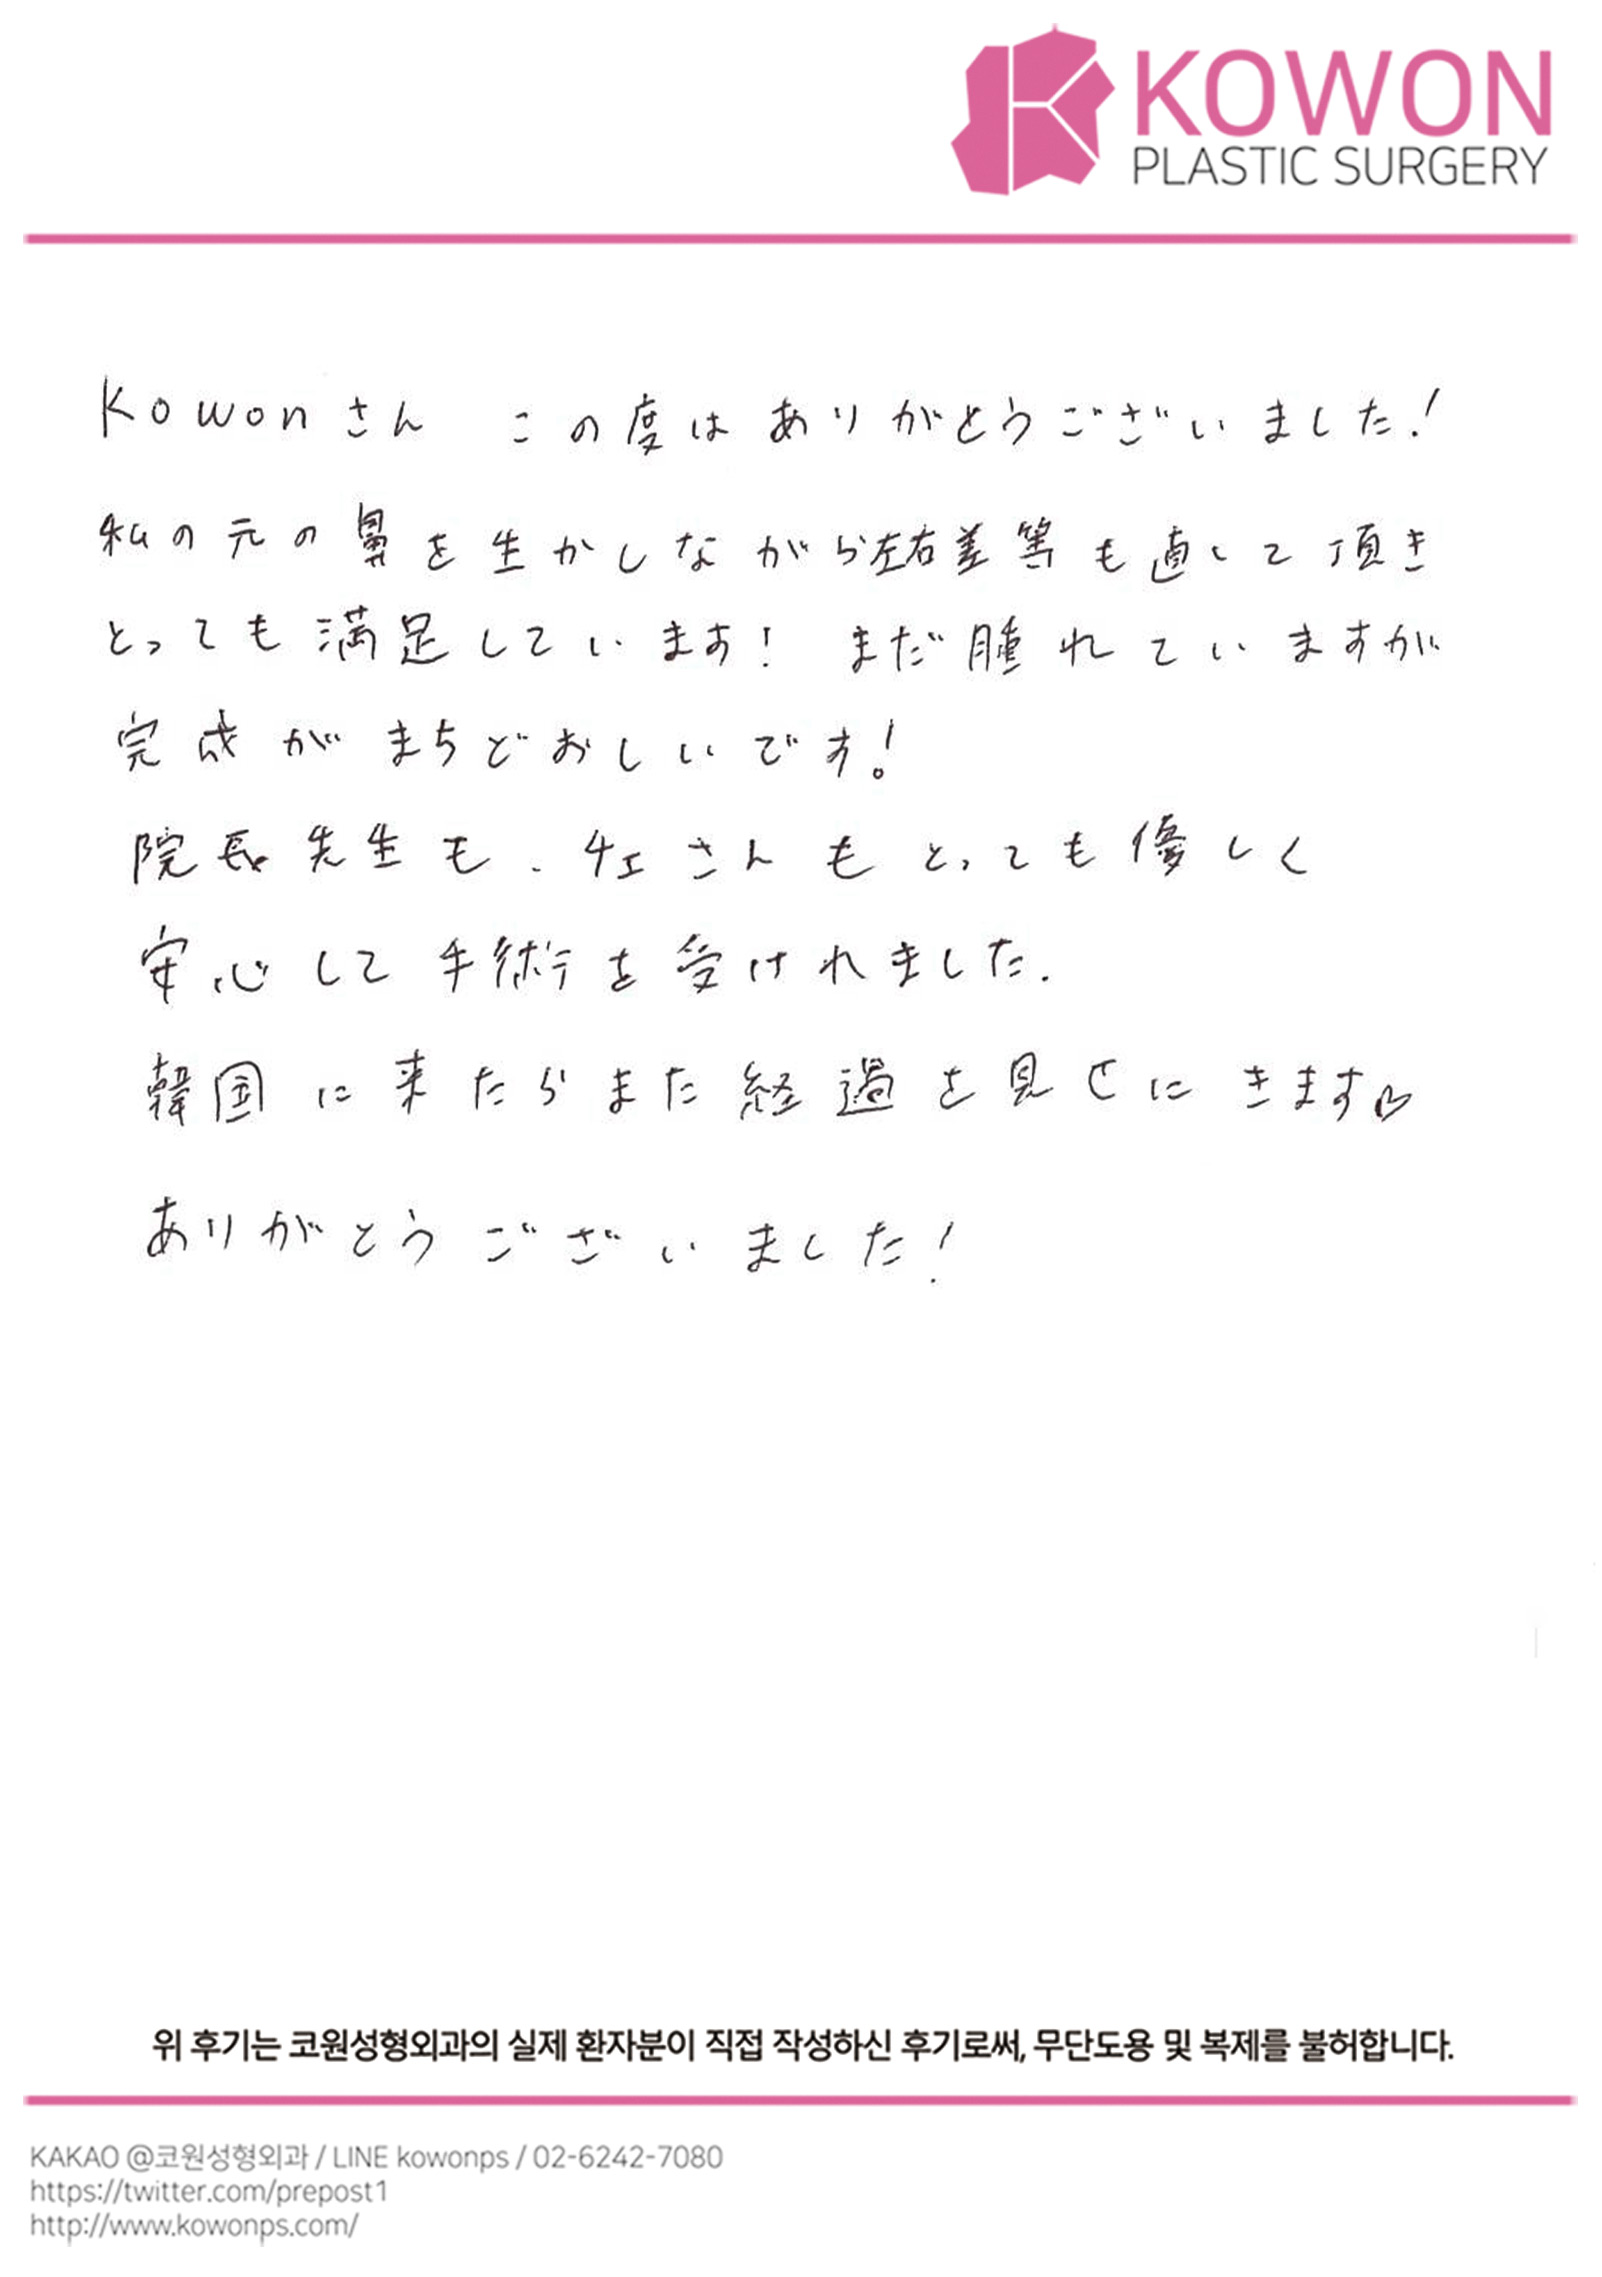 KOWON
PLASTIC SURGERY
Kowonさん この度はありがとうございました!
私の元の鼻を生かしながら左右差等も直して頂き
とっても満足しています! まだ腫れていますが
完成がまちどおしいです!
院長先生も、チェさんもとっても優しく
安心して手術を受けれました.
韓国に来たらまた経過を見せにきます♡
ありがとうございました!
위 후기는 코원성형외과의 실제 환자분이 직접 작성하신 후기로써, 무단도용 및 복제를 불허합니다.
KAKAO @코원성형외과 / LINE kowonps / 02-6242-7080
https://twitter.com/prepost1
http://www.kowonps.com/